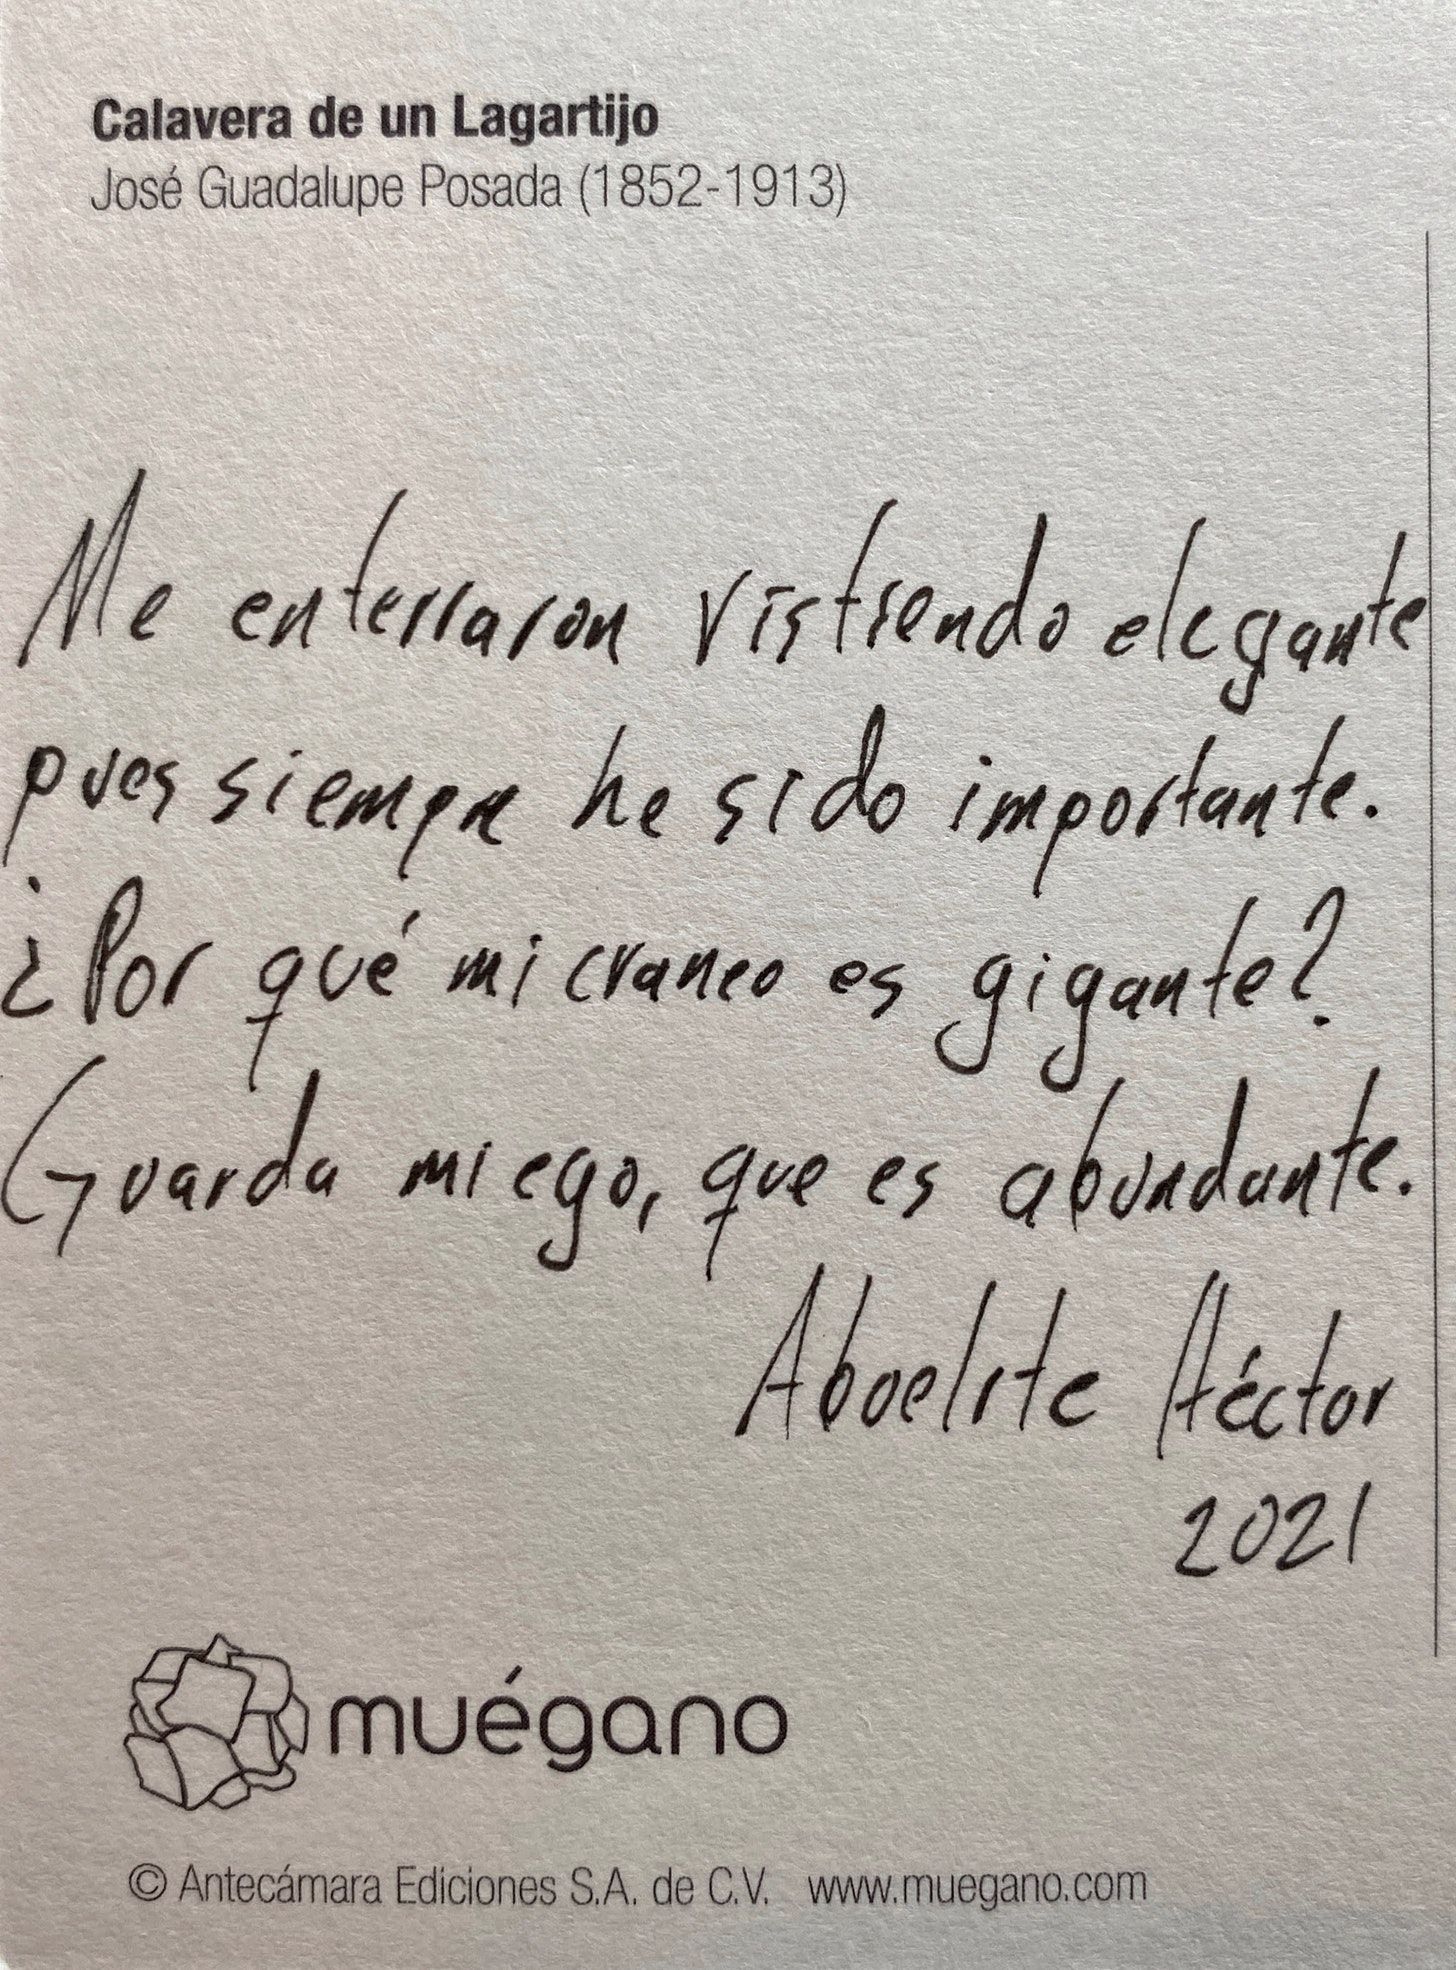 Calavera de un Lagartijo
José Guadalupe Posada (1852-1913)
Me enterraron vistiendo elegante
pues siempre he sido importante.
¿Por qué mi craneo es gigante?
Guarda mi ego, que es abundante.
Abuelite Héctor
2021
muégano
© Antecámara Ediciones S.A. de C.V. www.muegano.com